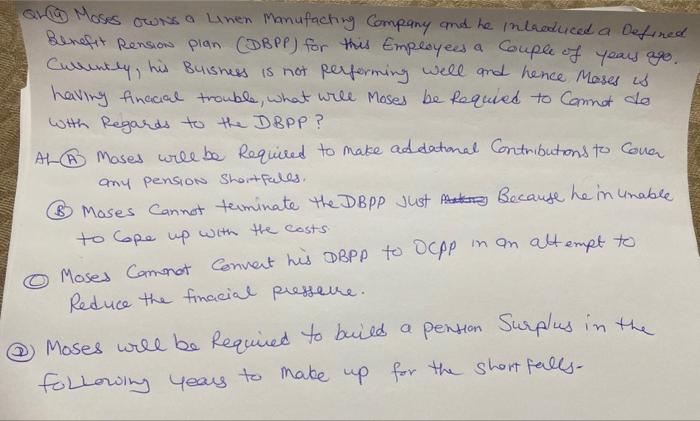 Q1 (19) Moses owns a Linen Manufacting Company and he intreduced a Defined
Benefit Pension plan (DBPP) for this Employees a Couple of years ago.
Currently, his Buisness is not performing well and hence Moses is
having finacial trouble, what will Moses be Required to Cannot do
with Regards to the DBPP?
A1- (A) Moses will be Required to make addational Contributions to Cover
any pension shortfalls.
(B) Moses Cannot terminate the DBPP Just Because he in unable
to Cope up with the costs
(C) Moses Cannot Convert his DBPP to DCPP in an attempt to
Reduce the finacial pressure.
(D) Moses will be Required to build a pension Surplus in the
following years to make up for the short falls-